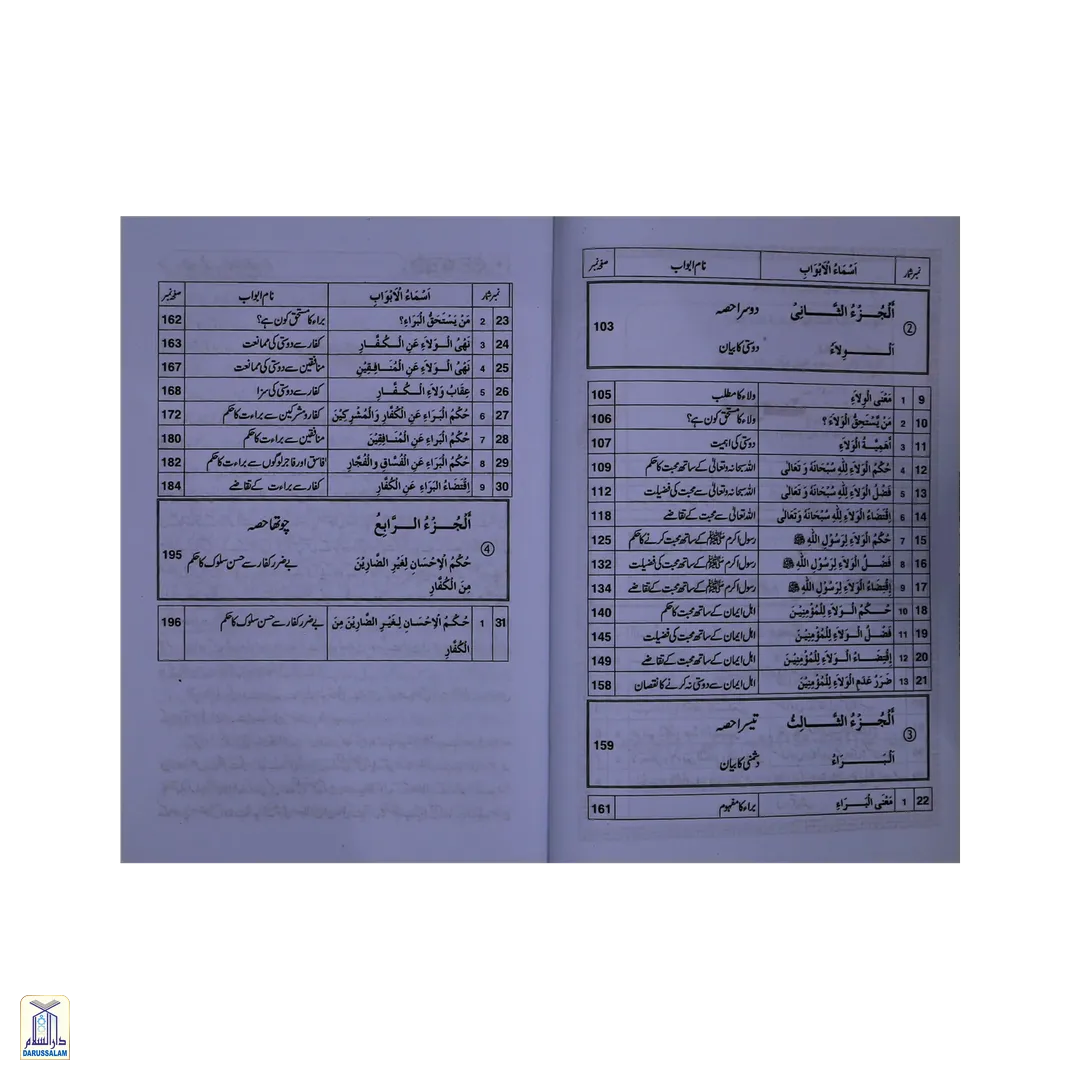 نمبر شمار اَسْمَاءُ الْاَبْوَابِ نام ابواب صفحہ نمبر
② اَلْجُزْءُ الثَّانِیْ دوسرا حصہ 103
اَلْوِلَاءُ دوستی کا بیان
9 1 مَعْنَی الْوِلَاءِ ولاء کا مطلب 105
10 2 مَنْ يَّسْتَحِقُّ الْوَلَاءَ ؟ ولاء کا مستحق کون ہے؟ 106
11 3 اَهَمِّيَّةُ الْوَلَاءِ دوستی کی اہمیت 107
12 4 حُكْمُ الْوِلَاءِ لِلّٰهِ سُبْحَانَهٗ وَ تَعَالٰی اللہ سبحانہ وتعالیٰ کے ساتھ محبت کا حکم 109
13 5 فَضْلُ الْوِلَاءِ لِلّٰهِ سُبْحَانَهٗ وَ تَعَالٰی اللہ سبحانہ وتعالیٰ سے محبت کی فضیلت 112
14 6 اِقْتِضَاءُ الْوِلَاءِ لِلّٰهِ سُبْحَانَهٗ وَ تَعَالٰی اللہ تعالیٰ سے محبت کے تقاضے 118
15 7 حُكْمُ الْوِلَاءِ لِرَسُوْلِ اللّٰهِ ﷺ رسول اکرم ﷺ کے ساتھ محبت کرنے کا حکم 125
16 8 فَضْلُ الْوِلَاءِ لِرَسُوْلِ اللّٰهِ ﷺ رسول اکرم ﷺ کے ساتھ محبت کی فضیلت 132
17 9 اِقْتِضَاءُ الْوِلَاءِ لِرَسُوْلِ اللّٰهِ ﷺ رسول اکرم ﷺ کے ساتھ محبت کے تقاضے 134
18 10 حُكْمُ الْوِلَاءِ لِلْمُؤْمِنِيْنَ اہل ایمان کے ساتھ محبت کا حکم 140
19 11 فَضْلُ الْوِلَاءِ لِلْمُؤْمِنِيْنَ اہل ایمان کے ساتھ محبت کی فضیلت 145
20 12 اِقْتِضَاءُ الْوِلَاءِ لِلْمُؤْمِنِيْنَ اہل ایمان کے ساتھ محبت کے تقاضے 149
21 13 ضَرَرُ عَدَمِ الْوَلَاءِ لِلْمُؤْمِنِيْنَ اہل ایمان سے دوستی نہ کرنے کا نقصان 158
③ اَلْجُزْءُ الثَّالِثُ تیسرا حصہ 159
اَلْبَرَاءُ دشمنی کا بیان
22 1 مَعْنَی الْبَرَاءِ براء کا مفہوم 161
نمبر شمار اَسْمَاءُ الْاَبْوَابِ نام ابواب صفحہ نمبر
23 2 مَنْ يَسْتَحِقُّ الْبَرَاءِ؟ براء کا مستحق کون ہے؟ 162
24 3 نَهْیُ الْوِلَاءِ عَنِ الْكُفَّارِ کفار سے دوستی کی ممانعت 163
25 4 نَهْیُ الْوِلَاءِ عَنِ الْمُنَافِقِيْنَ منافقین سے دوستی کی ممانعت 167
26 5 عِقَابُ وَلَاءِ الْكُفَّارِ کفار سے دوستی کی سزا 168
27 6 حُكْمُ الْبَرَاءِ عَنِ الْكُفَّارِ وَالْمُشْرِكِيْنَ کفار و مشرکین سے براءت کا حکم 172
28 7 حُكْمُ الْبَرَاءِ عَنِ الْمُنَافِقِيْنَ منافقین سے براءت کا حکم 180
29 8 حُكْمُ الْبَرَاءِ عَنِ الْفُسَّاقِ وَالْفُجَّارِ فاسق اور فاجر لوگوں سے براءت کا حکم 182
30 9 اِقْتِضَاءُ الْبَرَاءِ عَنِ الْكُفَّارِ کفار سے براءت کے تقاضے 184
④ اَلْجُزْءُ الرَّابِعُ چوتھا حصہ 195
حُكْمُ الْاِحْسَانِ لِغَيْرِ الضَّارِيْنَ بے ضرر کفار سے حسن سلوک کا حکم
مِنَ الْكُفَّارِ
31 1 حُكْمُ الْاِحْسَانِ لِغَيْرِ الضَّارِيْنَ مِنَ بے ضرر کفار سے حسن سلوک کا حکم 196
الْكُفَّارِ
دارالسلام
DARUSSALAM